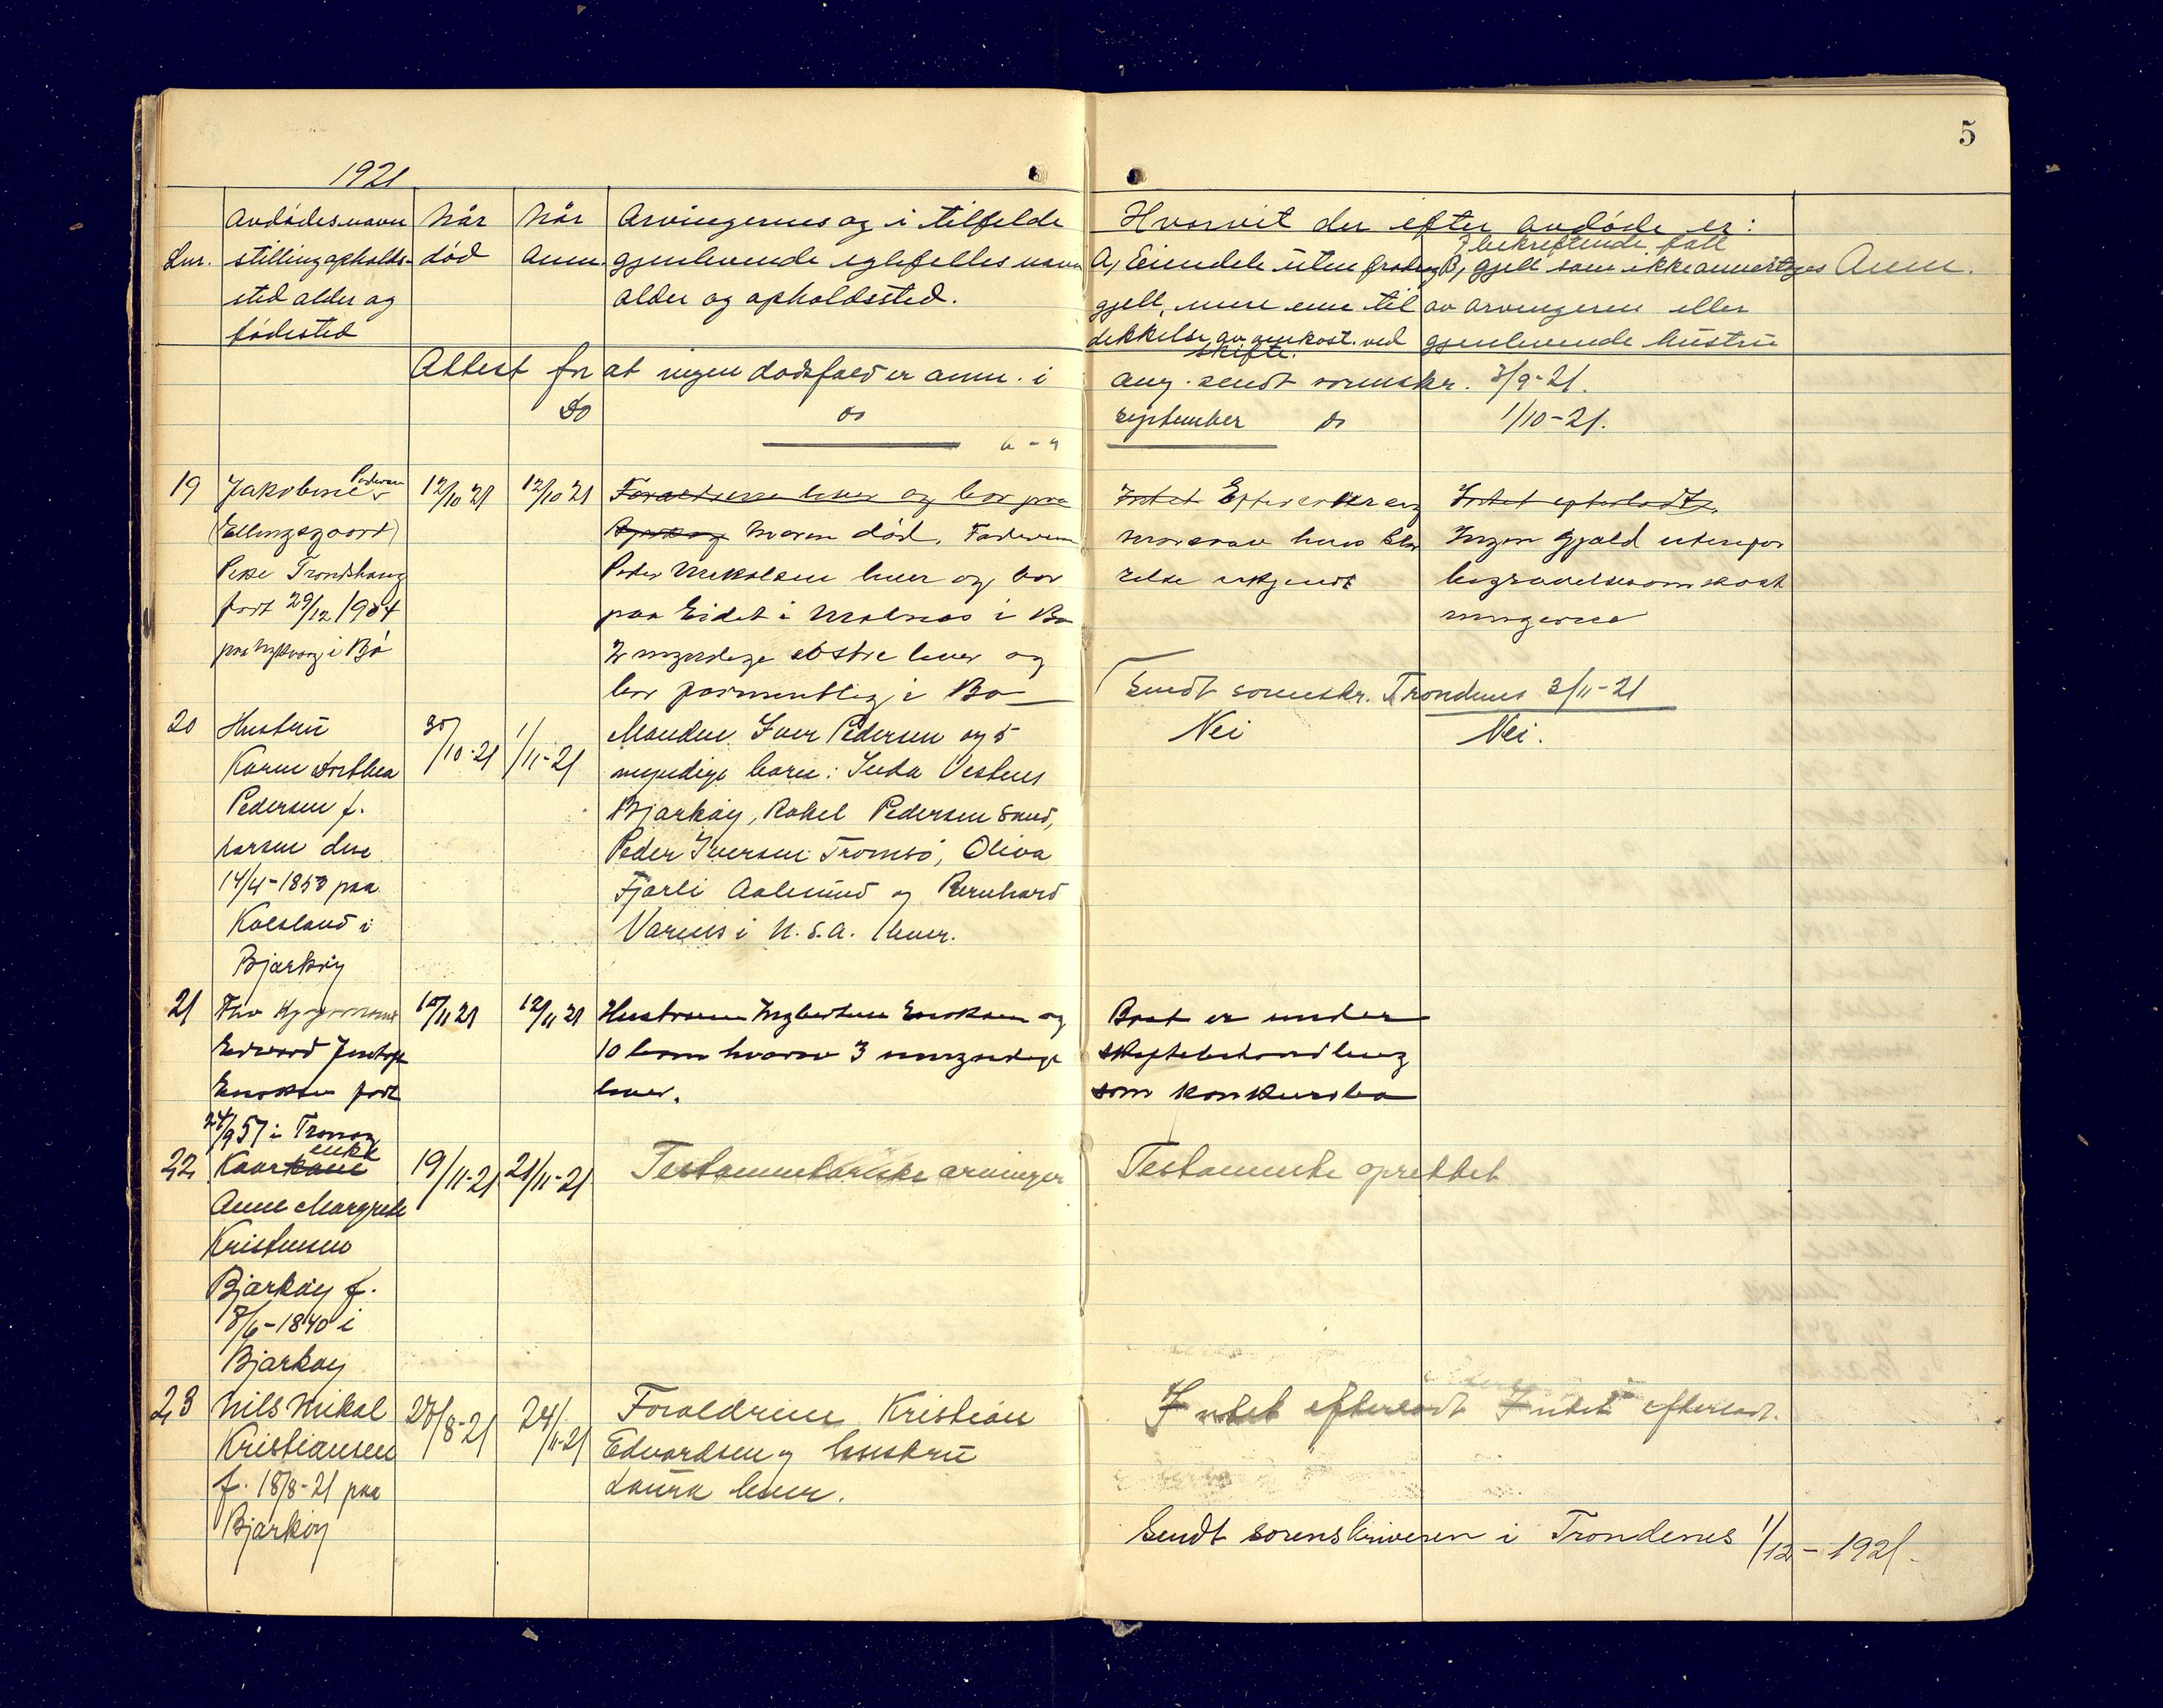 5
1921
Lnr.
Avdødes navn
stilling opholds-
sted alder og
fødested
Når
død
Når
Anm.
Arvingernes og i tilfelde
gjenlevende egtefelles navn
alder og opholdssted.
Hvorvit der efter avdøde er:
A, Eiendele uten fradrag
gjell, mere enn til
dekkelse av omkost. ved
skifte.
I bekreftende fall
B, gjell som ikke anvertages
av arvingerne eller
gjenlevende hustru
Anm.
Attest for at ingen dødsfald er anm. i aug. sendt sorenskr. 3/9-21.
do do september do 1/10-21.
6 - 9
19
Jakobine Pedersen
(Ellingsgaard)
Pike Trondshaug
født 29/12 1904
paa Nykvaag i Bø
12/10 21
12/10 21
Foraeldrene lever og bor paa
Bjarkøy Moren død. Faderen
Peder Mikalsen lever og bor
paa Eidet i Malnes i Bø
2 myndige søstre lever og
bor formentlig i Bø
Intet
Intet efterladt.
Ingen Gjæld utenfor
begravelsesomkost
ningerne
Sendt sorenskr. Trondenes 3/11-21
20
Hustru
Karen Dorthea
Pedersen f.
Larsen
14/4-1853 paa
Kalsland i
Bjarkøy
30/10-21
1/11-21
Manden Iver Pedersen og 5
myndige barn: Inda Vestnes
Bjarkøy, Rakel Pedersen Sand,
Peder Iversen Tromsø, Oliva
Fjørli Aalesund og Bernhard
Varnes i U.S.A. lever.
Nei
Nei.
21
Edvard
Enoksen født
24/9 57 i
10/11 21
12/11 21
Hustruen Ingbertine Enoksen og
10 barn hvorav 3 umyndige
lever.
Boet er under
skiftebehandling
som konkursbo
22
Kaarkone
enke
Anne Margrete
Kristensen
Bjarkøy f.
8/6-1840 i
Bjarkøy
19/11-21
21/11-21
Testamentariske arvinger
Testamente oprettet
23
Nils Mikal
Kristiansen
f. 18/8-21 paa
Bjarkøy
24/11-21
Foraldrene Kristian
Edvardsen og hustru
Laura lever.
Intet efterladt Intet efterladt.
Sendt sorenskriveren i Trondenes 1/12-1921.